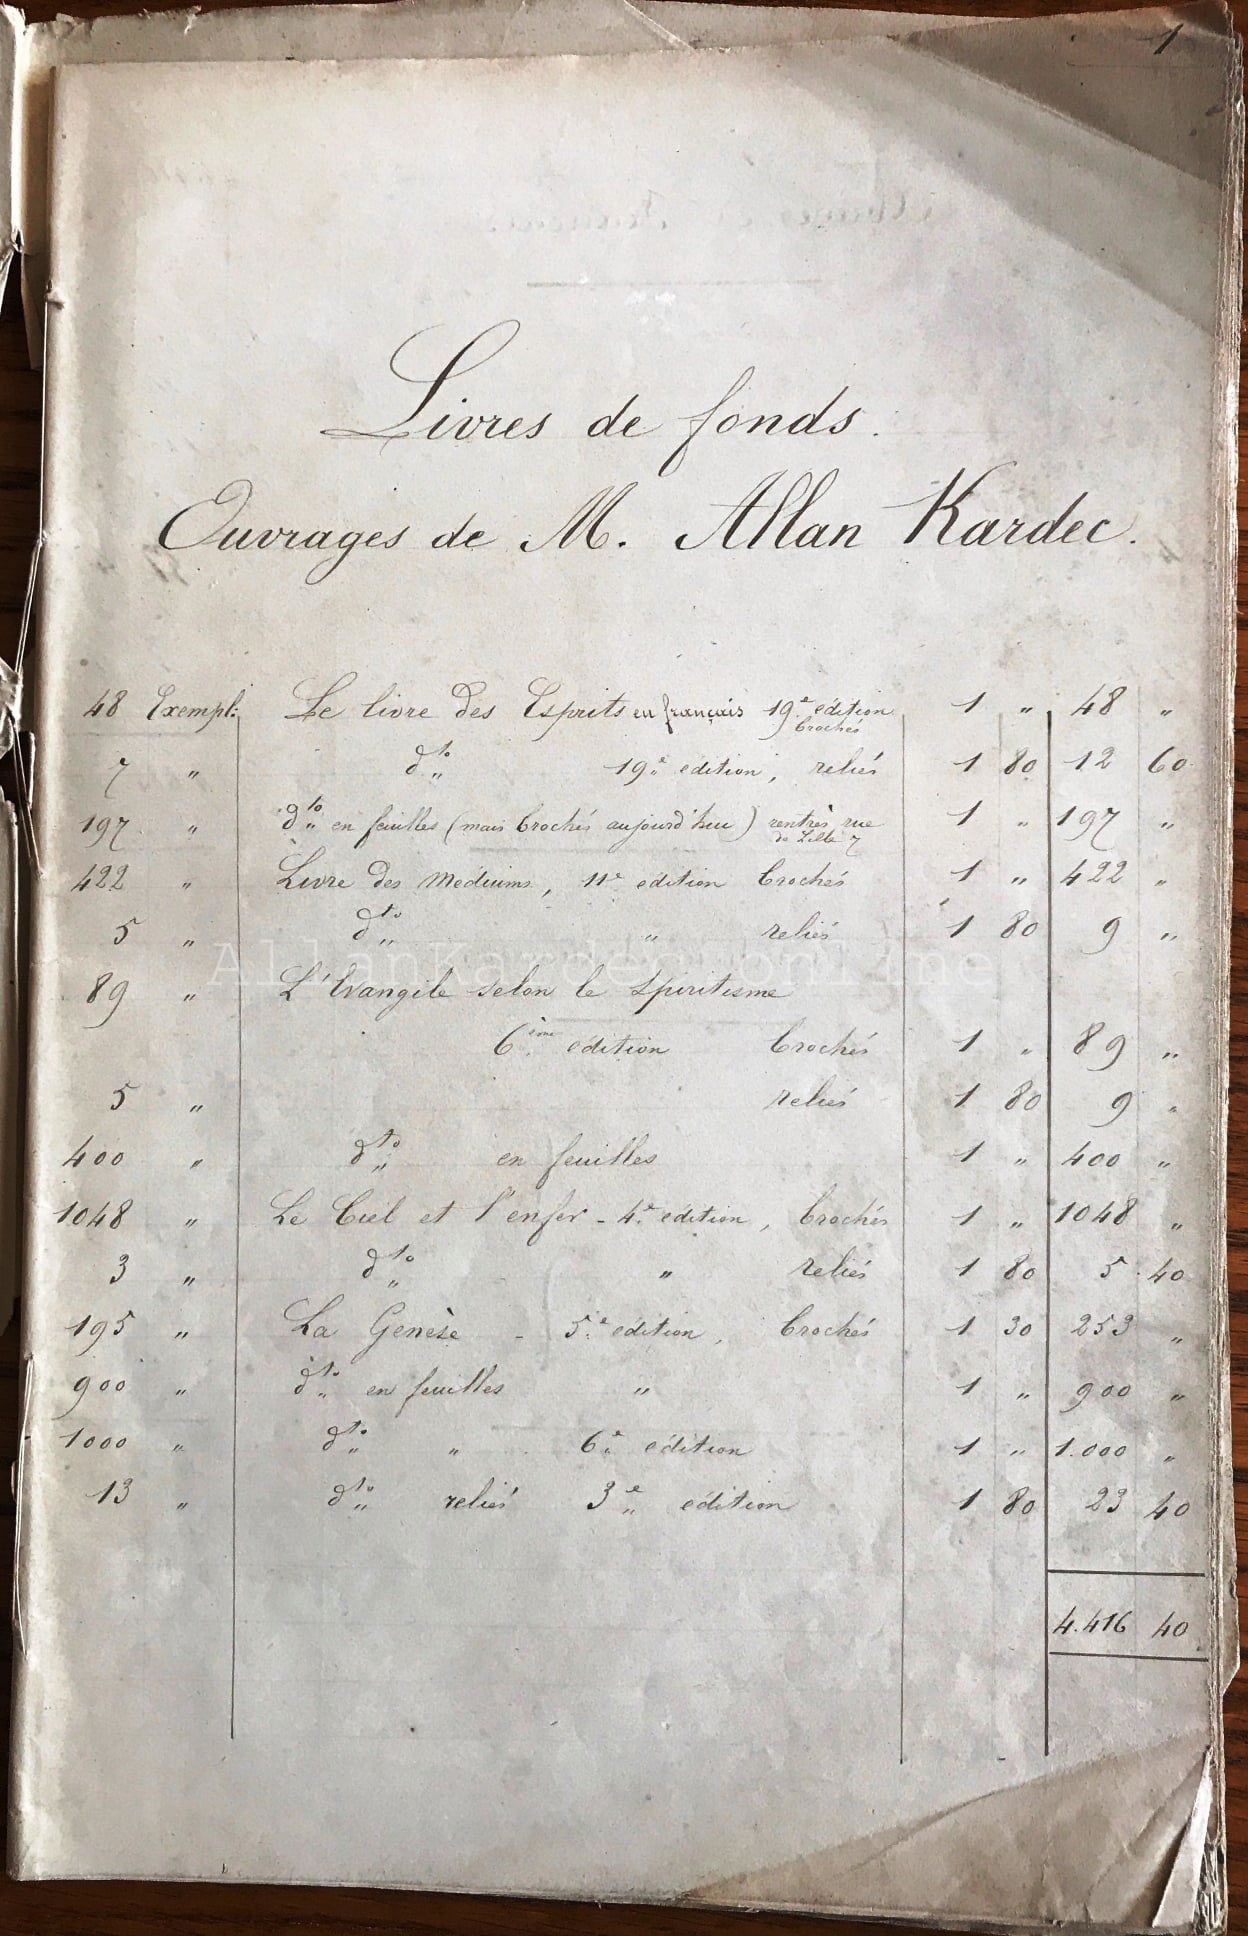 1
Livres de fonds.
Ouvrages de M. Allan Kardec.
48 Exempl: Le livre des Esprits en français 19e edition brochés 1 " 48 "
7 " dto " 19e edition, reliés 1 80 12 60
197 " dto " en feuilles (mais brochés aujourd'hui) rentrés rue de Lille 7 1 " 197 "
422 " Livre des Médiums, 11e edition brochés 1 " 422 "
5 " dto " " reliés 1 80 9 "
89 " L'Evangile selon le spiritisme
6ème edition brochés 1 " 89 "
5 " reliés 1 80 9 "
400 " dto " en feuilles 1 " 400 "
1048 " Le Ciel et l'enfer - 4e edition, brochés 1 " 1048 "
3 " dto " " reliés 1 80 5 40
195 " La Genèse - 5e edition, brochés 1 30 253 "
900 " dto " en feuilles " 1 " 900 "
1000 " dto " " 6e édition 1 " 1.000 "
13 " dto " reliés 3e édition 1 80 23 40
4.416 40
AllanKardec.online